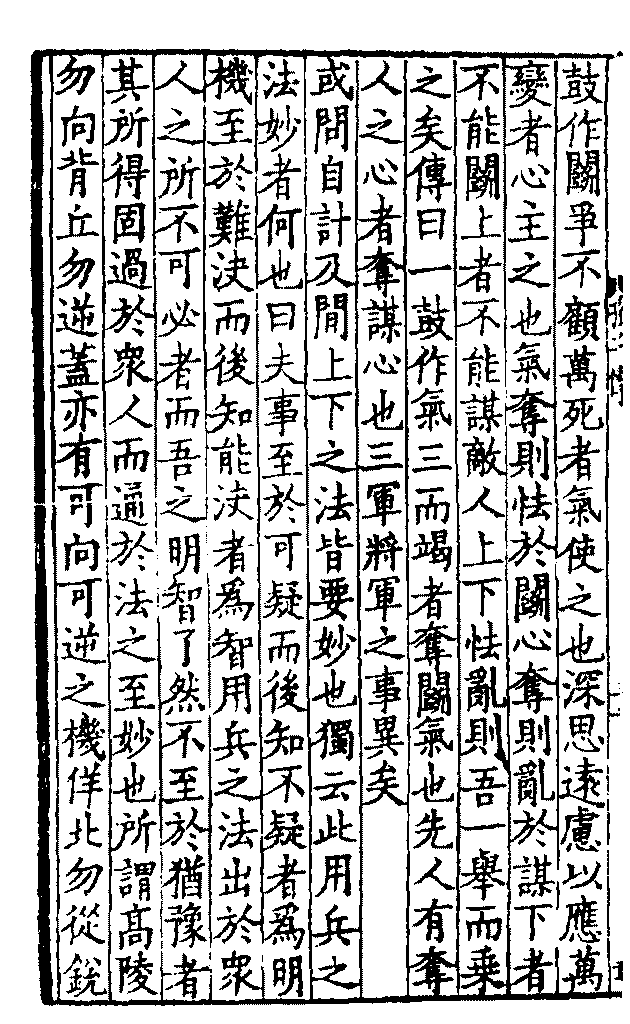 鼓作鬭爭不顧萬死者氣使之也深思遠慮以應萬
變者心主之也氣奪則怯於鬭心奪則亂於謀下者
不能鬭上者不能謀敵人上下怯亂則吾一舉而乗
之矣傳曰一鼓作氣三而竭者奪鬭氣也先人有奪
人之心者奪謀心也三軍將軍之事異矣
或問自計及間上下之法皆要妙也獨云此用兵之
法妙者何也曰夫事至於可疑而後知不疑者爲明
機至於難決而後知能決者爲智用兵之法出於衆
人之所不可必者而吾之明智了然不至於猶豫者
其所得固過於衆人而通於法之至妙也所謂髙陵
勿向背丘勿逆蓋亦有可向可逆之機佯北勿從銳